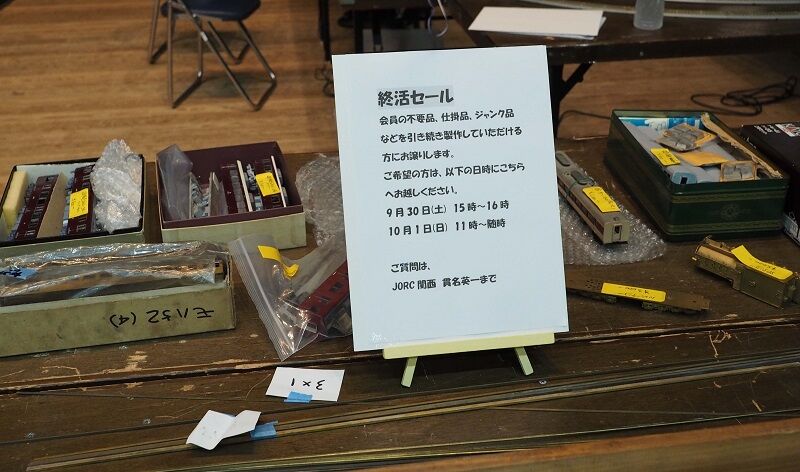 終活セール
会員の不要品、仕掛品、ジャンク品
などを引き続き製作していただける
方にお譲りします。
ご希望の方は、以下の日時にこちら
へお越しください。
9月30日(土) 15時～16時
10月1日(日) 11時～随時
ご質問は、
JORC関西 貫名英一まで
モハ52 (4)
3×1